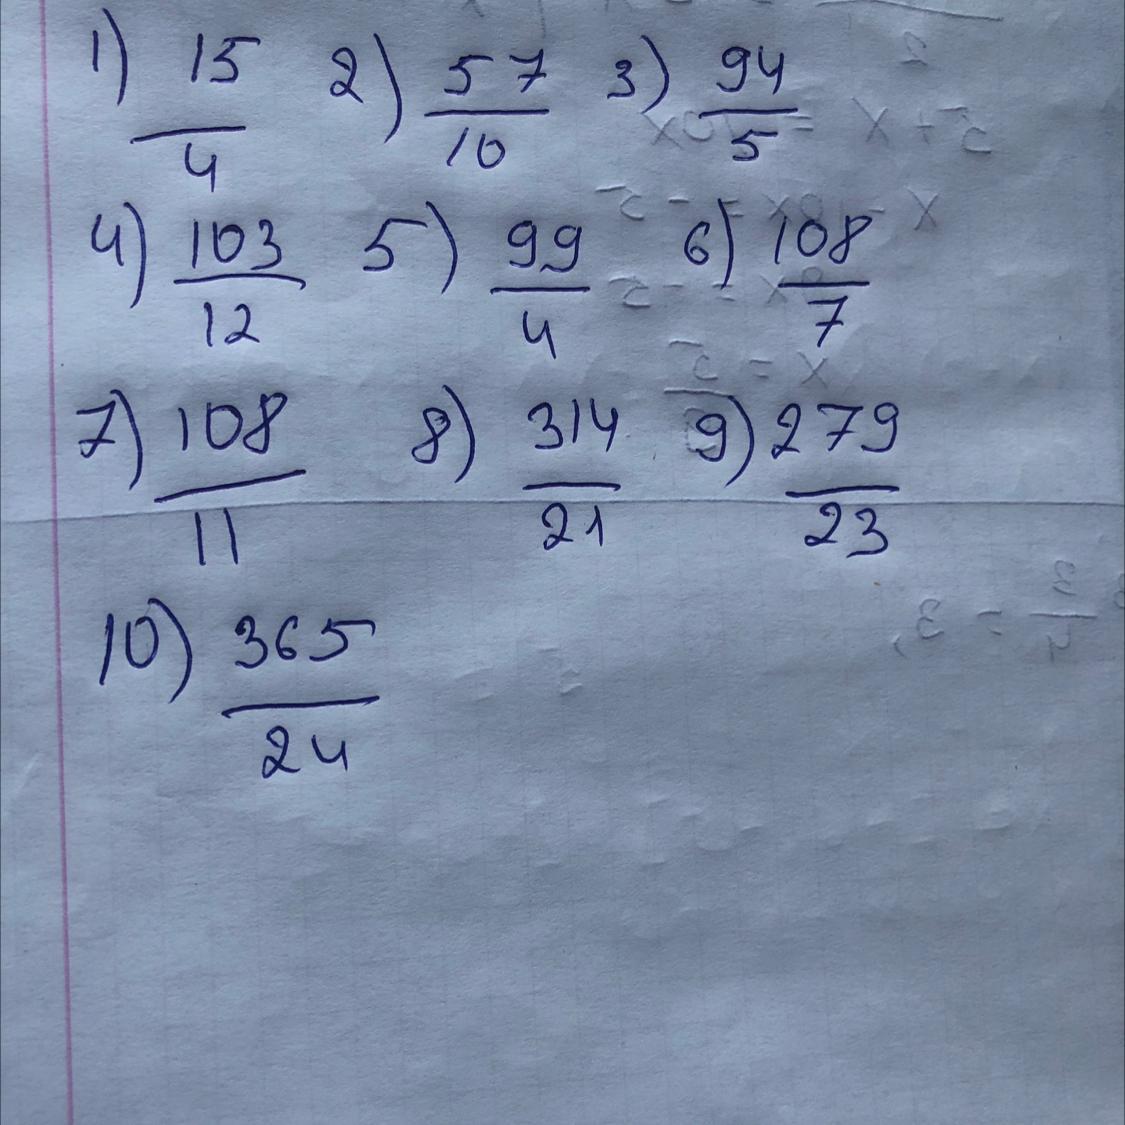 1) 15/4 2) 57/10 3) 94/5
4) 103/12 5) 99/4 6) 108/7
7) 108/11 8) 314/21 9) 279/23
10) 365/24